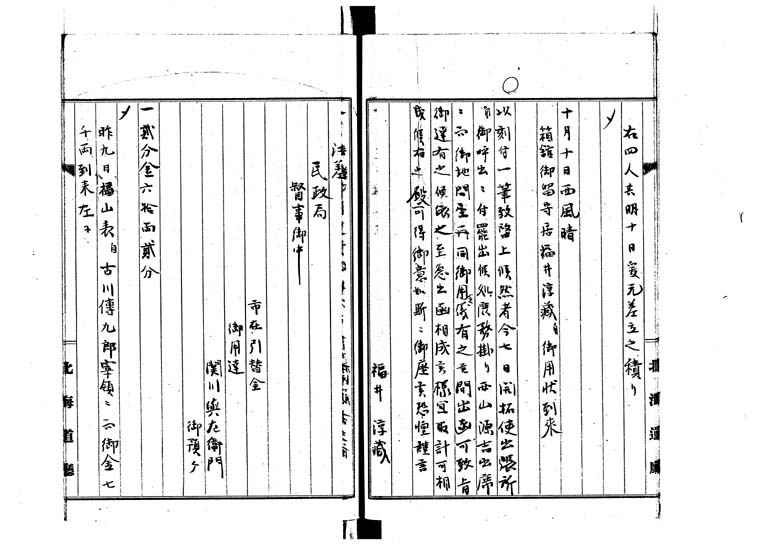 右四人共明十日爰元差立之積り
十月十日西風晴
箱舘御留守居福井淳蔵ゟ御用状到来
以刻付一筆致啓上候然者今七日開拓使出張所
ゟ御呼出ニ付罷出候処庶務掛り西山源吉出席
ニ而御地問屋共同御用儀有之云間出函可致旨
御達有之候依之至急出函相成候様宜取計可相
成候右之段可得御意如斯ニ御座候恐惶謹言
福井淳蔵
民政局
督事御中
市在引替金
御用達
関川與左衛門
御預ケ
一 貳分金六拾両貳分
昨九日福山表ゟ古川傳九郎宰領ニ而御金七
千両到来左ニ
北海道廳